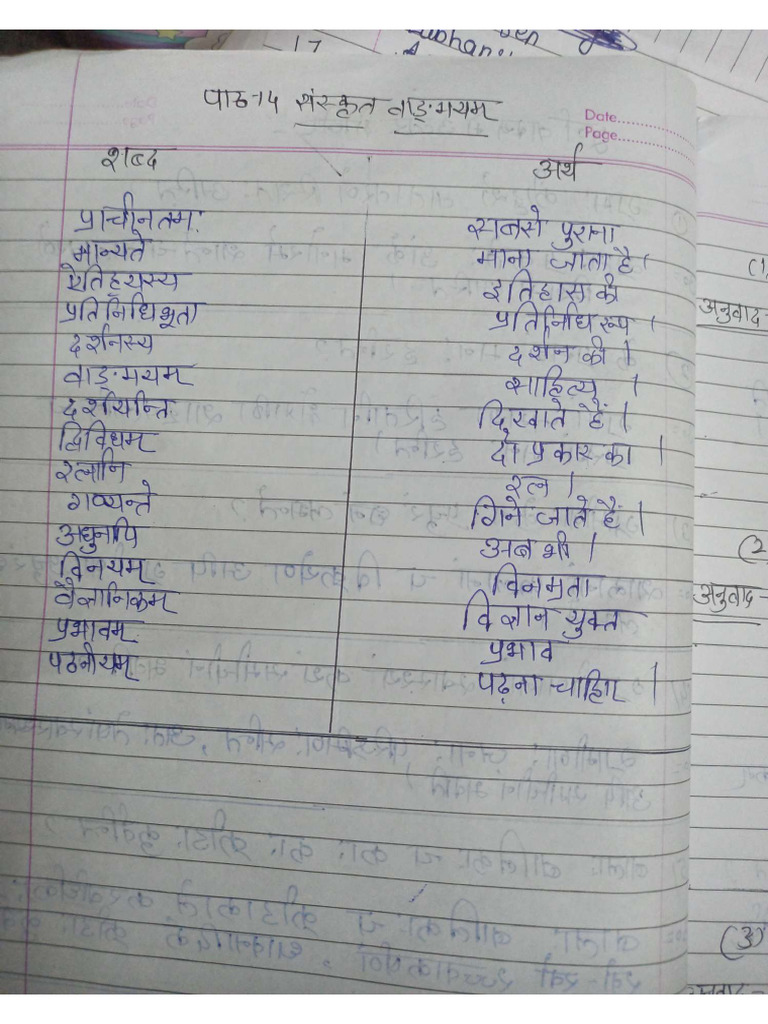 17
पाठ-14 संस्कृत वाङ्मयम्
Date
Page
शब्द अर्थ
प्राचीनतमः सबसे पुराना
मान्यते माना जाता है।
ऐतिह्यस्य इतिहास की
प्रतिनिधिभूता प्रतिनिधि रूप ।
दर्शनस्य दर्शन की ।
वाङ्मयम् साहित्य ।
दर्शयन्ति दिखाते हैं।
द्विविधम् दो प्रकार का ।
रत्नानि रत्न ।
गण्यन्ते गिने जाते हैं।
अधुनापि अब भी ।
विनयम् विनम्रता
वैज्ञानिकम् विज्ञान युक्त
प्रभावम् प्रभाव
पठनीयम् पढ़ना चाहिए ।
(1)
अनुवाद-
(2)
अनुवाद-
(3)